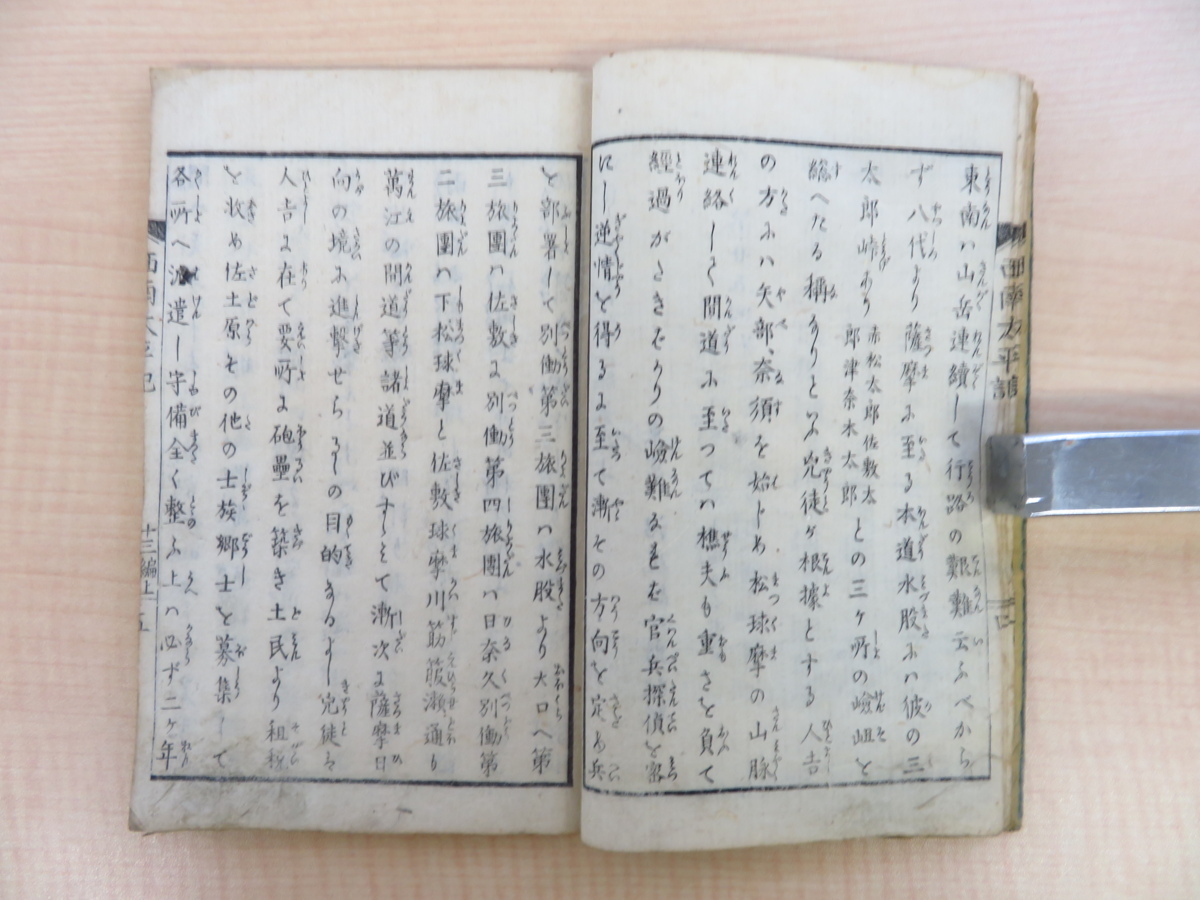 東南ハ山岳連續して行路の艱難云ふべから
ず八代より薩摩に至る本道水股にハ彼の三
太郎峠あり
赤松太郎佐敷太
郎津奈木太郎
との三ヶ所の嶮岨と
総へたる稱なりといふ兇徒が根據とする人吉
の方にハ矢部、奈須を始じめ松球摩の山脉
連絡しく間道に至つてハ樵夫も重さを負て
經過がたきばかりの嶮難なるを官兵探偵を密
にし逆情を得るに至て漸その方向を定め兵
を部署して別働第三旅團ハ水股より大口へ第
三旅團ハ佐敷に別働第四旅團ハ日奈久別働第
二旅團ハ下松球摩と佐敷球摩川筋
萬江の間道等諸道並びすゝみて漸次に薩摩日
向の境に進撃せらるゝの目的なるよし兇徒ハ
人吉に在て要所に砲壘を築き土民より租税
を收め佐土原その他の士族郷士を募集して
各所へ派遣し守備全く整ふ上ハ必ず二ヶ年
西南太平記
十三編上
五